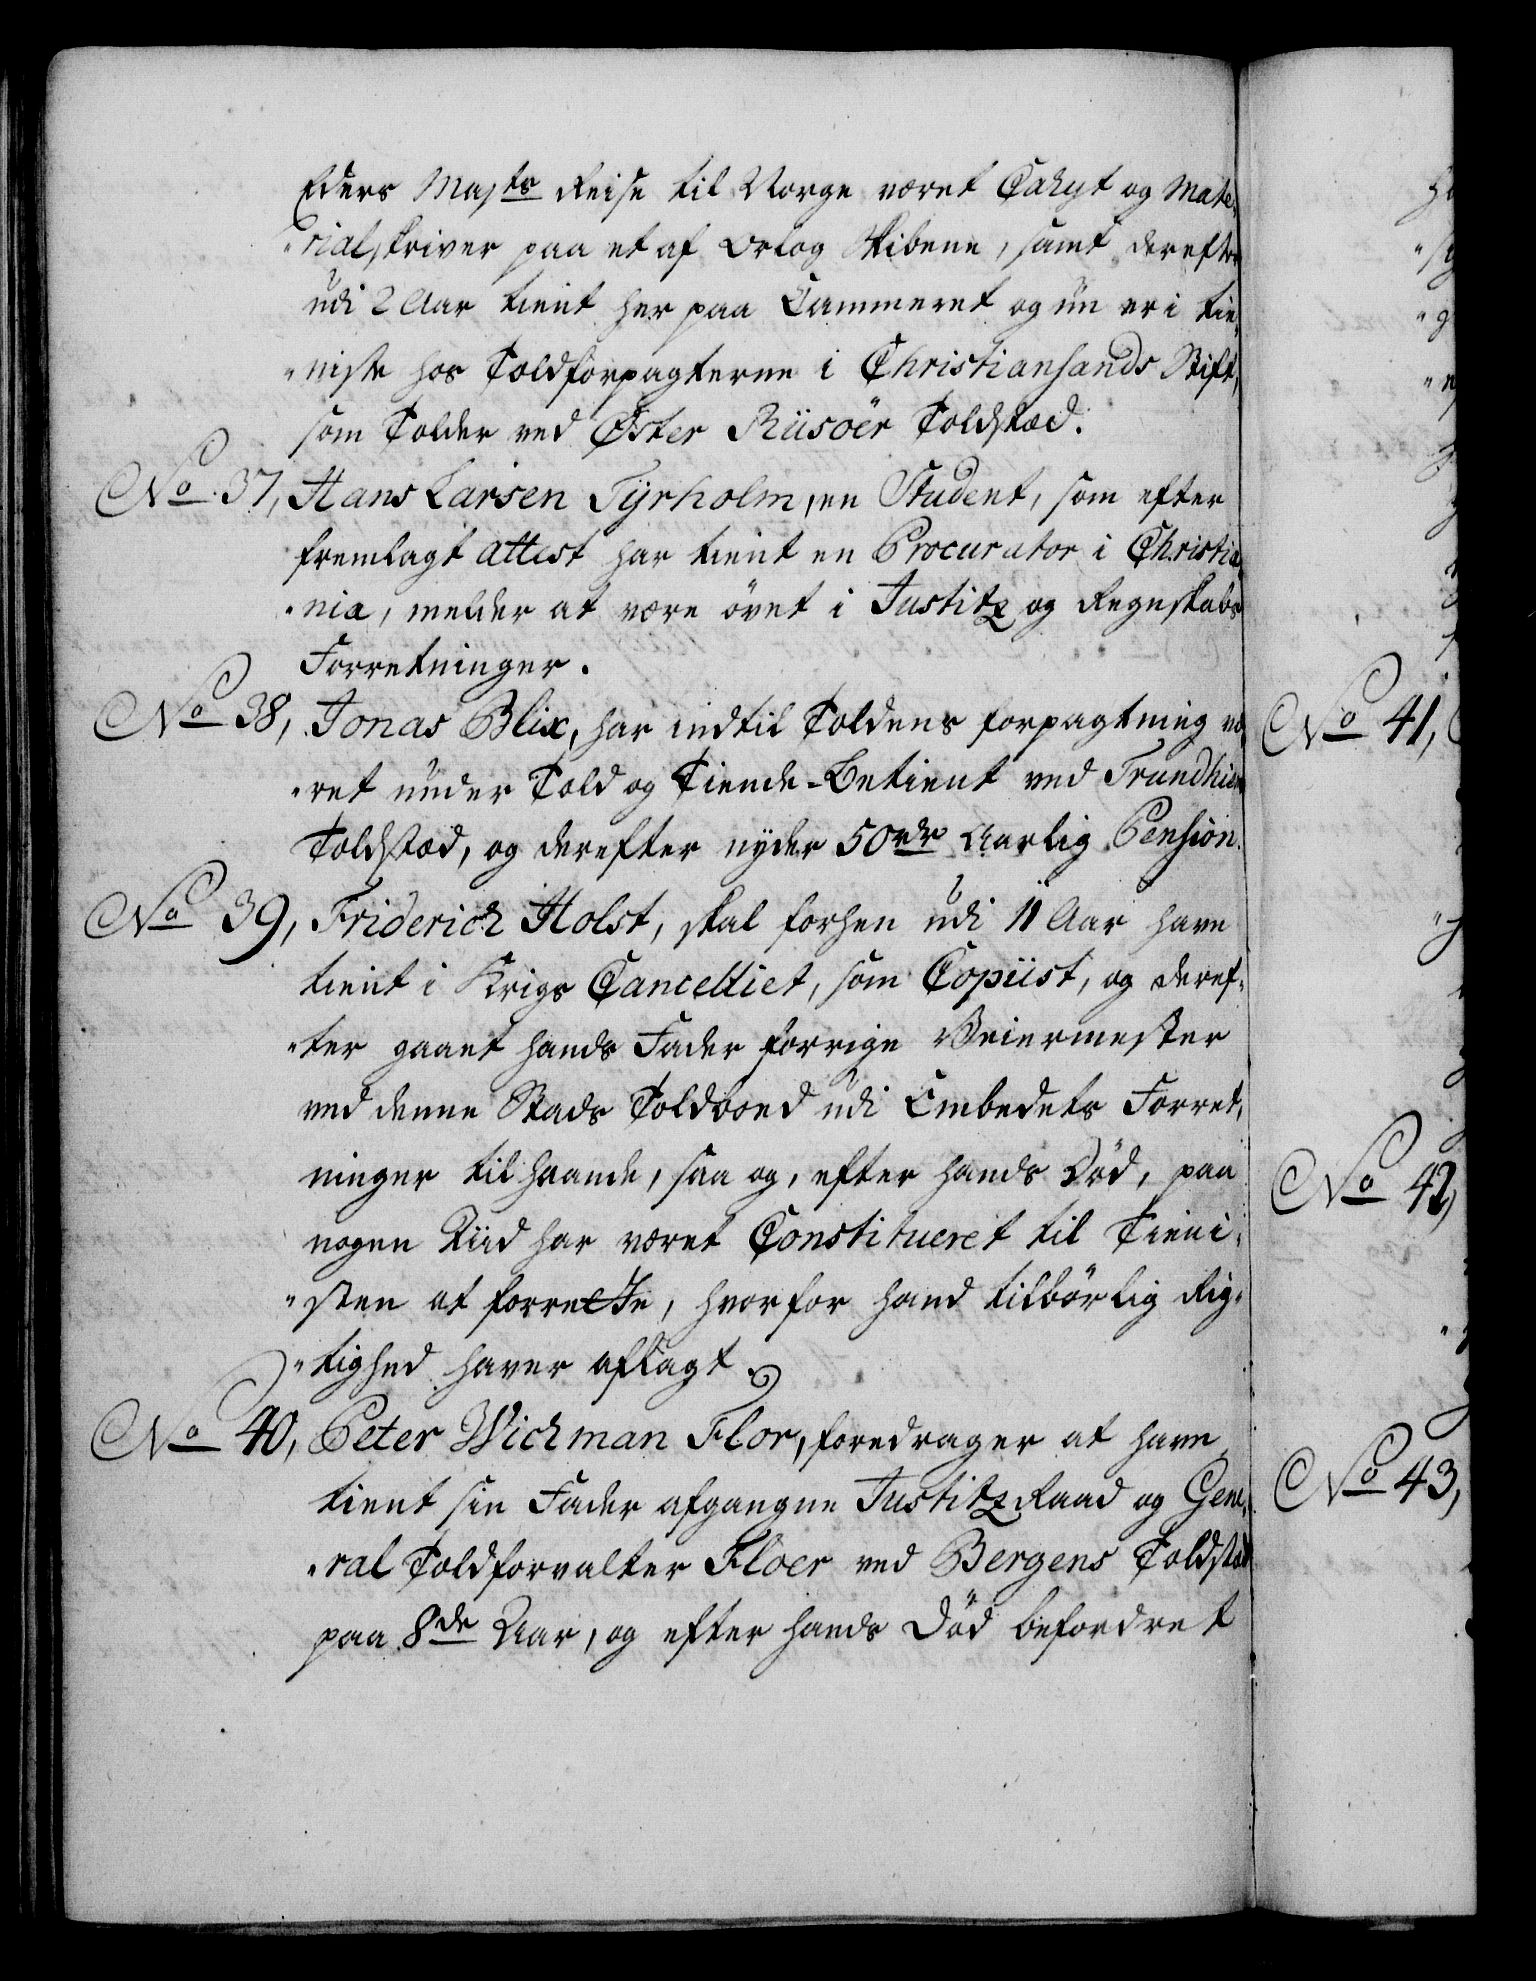 Eders Majts Reise til Norge været Cahyt og Mate,,
,,rialskriver paa et af Orlog Skibene, samt derefter
udi 2 Aar tient her paa Cammeret og nu er i tie,,
,,niste hos Toldforpagterne i Christiansands Stift,
som Tolder ved Øster Riisöer Toldstæd.
No 37, Hans Larsen Tyrholm, en Student, som efter
fremlagt Attest har tient en Procurator i Christia,,
,,nia, melder at være övet i Justitz og Regnskabs
Forretninger.
No 38, Jonas Blix, har indtil Toldens forpagtning væ,,
,,ret under Told og Tiende-Betient ved Trundhiem
Toldstæd, og derefter nyder 50rdr Aarlig Pension.
No 39, Friderich Holst, skal forhen udi 11 Aar have
tient i Krigs Cancelliet, som Copiist, og deref,,
,,ter gaaet hands Fader forrige Veiermester
ved denne Stads Toldboed udi Embedets Forret,,
ninger til haande, saa og, efter hands Död, paa
nogen Tiid har været Constitueret til Tieni,,
,,sten at forrette, hvorfor hand tilbörlig Rig,,
,,tighed haver aflagt.
No 40, Peter Wichman Flor, foredrager at have
tient sin Fader afgangne Justitz Raad og Gene,,
,,ral Toldforvalter Floer ved Bergens Toldstæd
paa 8de Aar, og efter hands Död befordret
No 41,
No 42,
No 43,